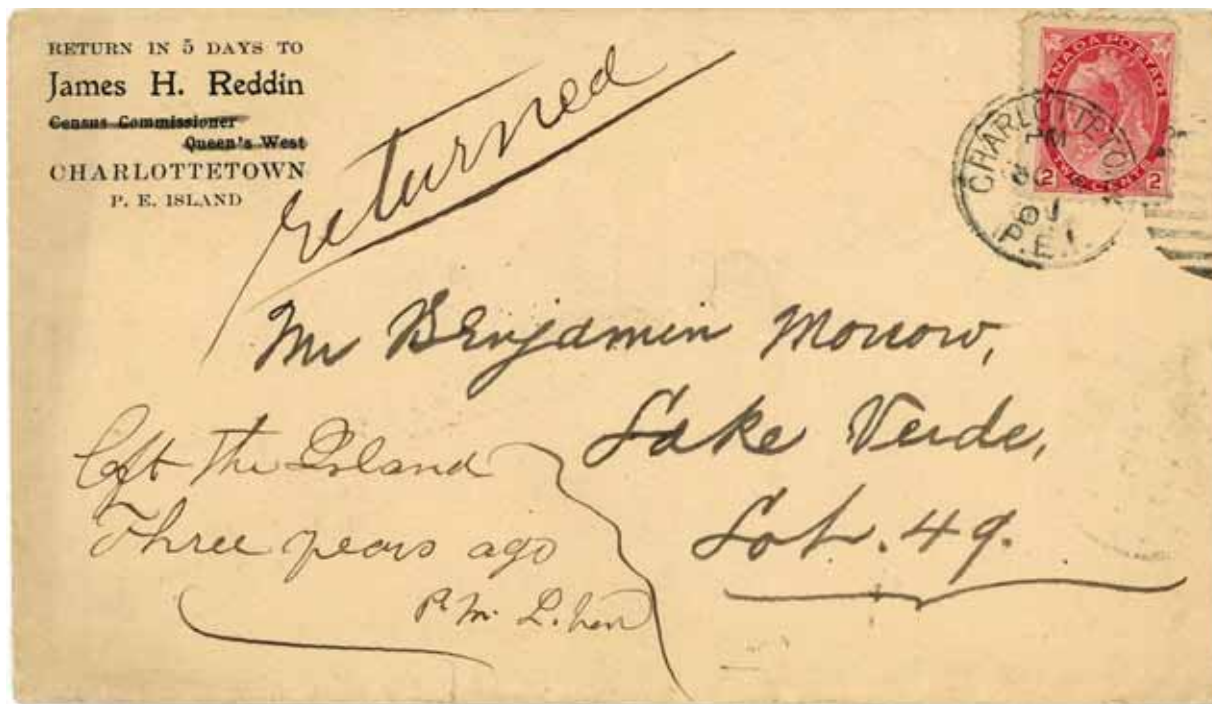 RETURN IN 5 DAYS TO
James H. Reddin
Census Commissioner
Queen's West
CHARLOTTETOWN
P. E. ISLAND
returned
CANADA POSTAGE
2 TWO CENTS 2
CHARLOTTETO
PM
01
P.E.I.
Mr Benjamin Morrow,
Lake Verde,
Lot. 49.
Left The Island
Three years ago
P. M.